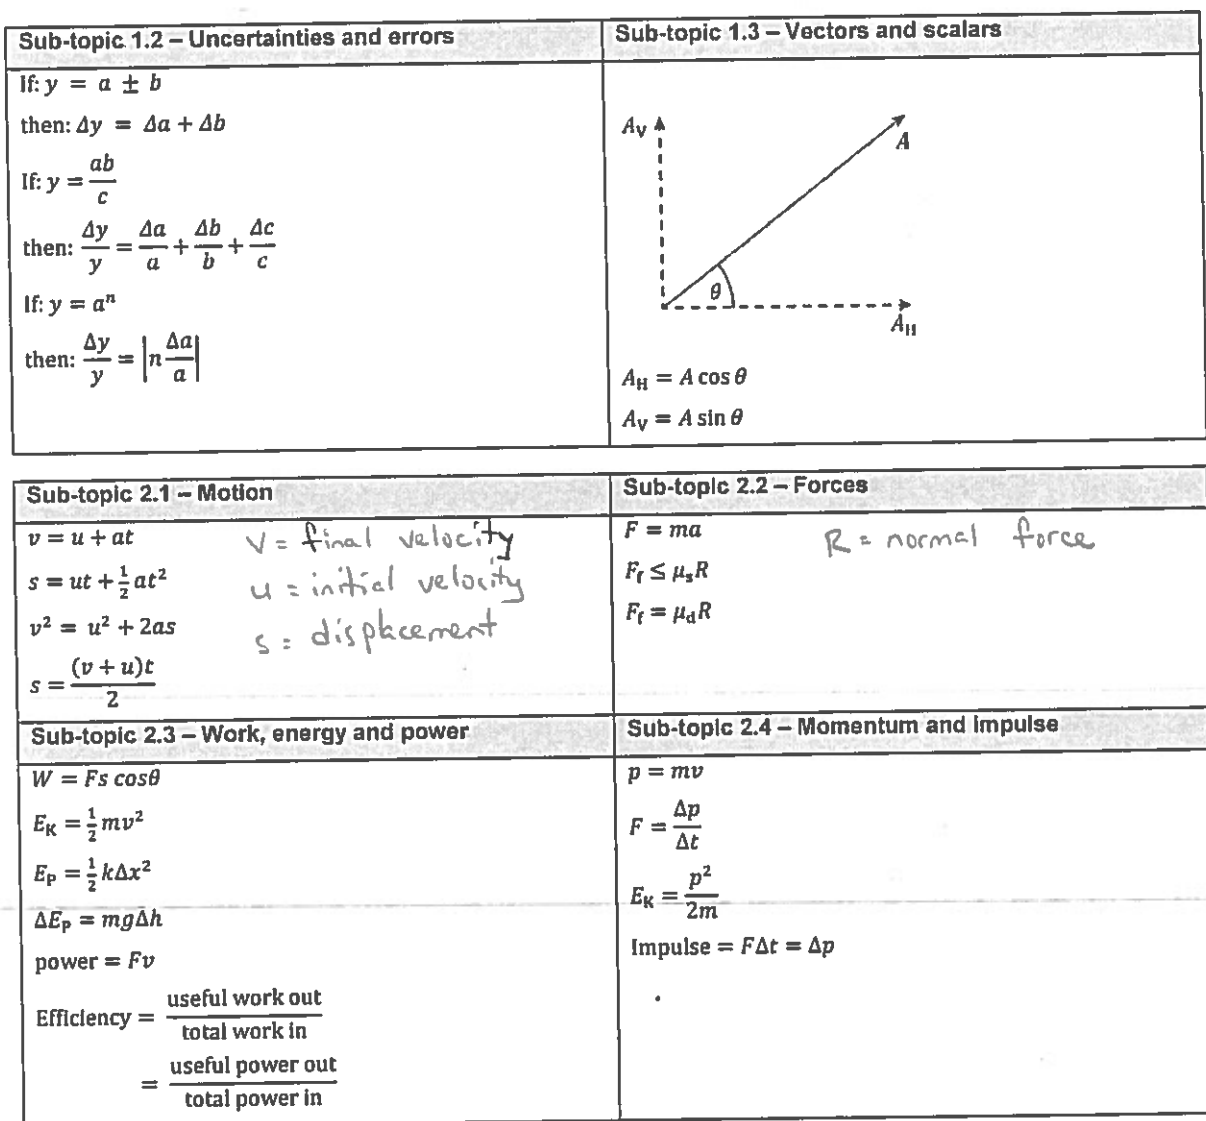 Sub-topic 1.2 – Uncertainties and errors
If: y = a ± b
then: Δy = Δa + Δb
If: y = ab/c
then: Δy/y = Δa/a + Δb/b + Δc/c
If: y = aⁿ
then: Δy/y = |n Δa/a|
Sub-topic 1.3 – Vectors and scalars
A_V
A
θ
A_H
A_H = A cos θ
A_V = A sin θ
Sub-topic 2.1 – Motion
v = u + at
s = ut + ½at²
v² = u² + 2as
s = (v + u)t/2
V = final velocity
u = initial velocity
s = displacement
Sub-topic 2.2 – Forces
F = ma
F_f ≤ μ_s R
F_f = μ_d R
R = normal force
Sub-topic 2.3 – Work, energy and power
W = Fs cosθ
E_K = ½mv²
E_P = ½kΔx²
ΔE_P = mgΔh
power = Fv
Efficiency = useful work out / total work in
= useful power out / total power in
Sub-topic 2.4 – Momentum and impulse
p = mv
F = Δp/Δt
E_K = p²/2m
Impulse = FΔt = Δp